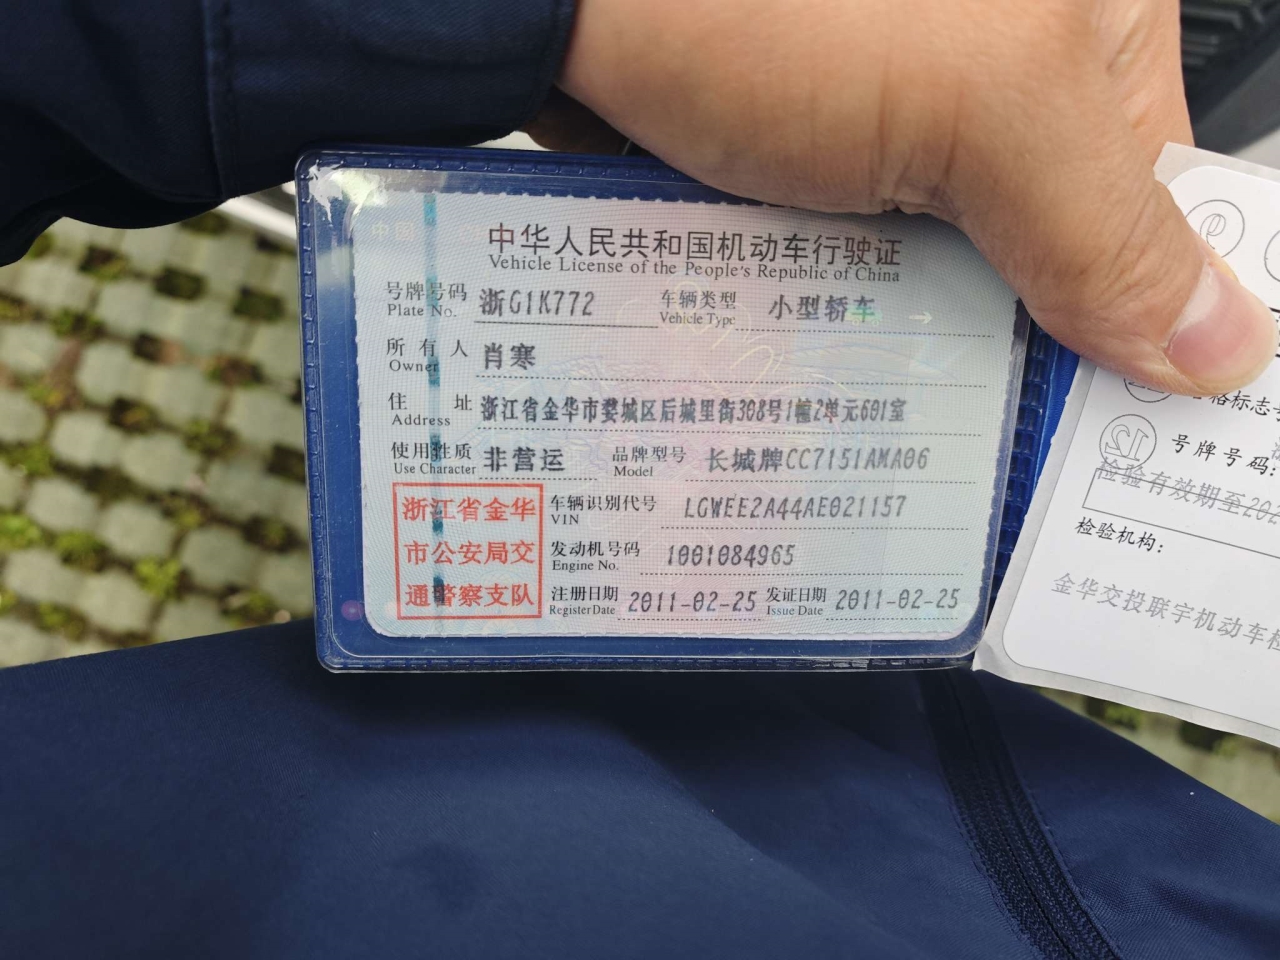 中国
中华人民共和国机动车行驶证
Vehicle License of the People's Republic of China
号牌号码 浙G1K772 车辆类型 小型轿车
Plate No. Vehicle Type
所有人 肖寒
Owner
住址 浙江省金华市婺城区后城里街308号1幢2单元601室
Address
使用性质 非营运 品牌型号 长城牌CC7151AMA06
Use Character Model
浙江省金华
市公安局交
通警察支队
车辆识别代号 LGWEE2A44AE021157
VIN
发动机号码 1001084965
Engine No.
注册日期 2011-02-25 发证日期 2011-02-25
Register Date Issue Date
9
格标志
12
号牌号码:
检验有效期至202
检验机构:
金华交投联宇机动车检